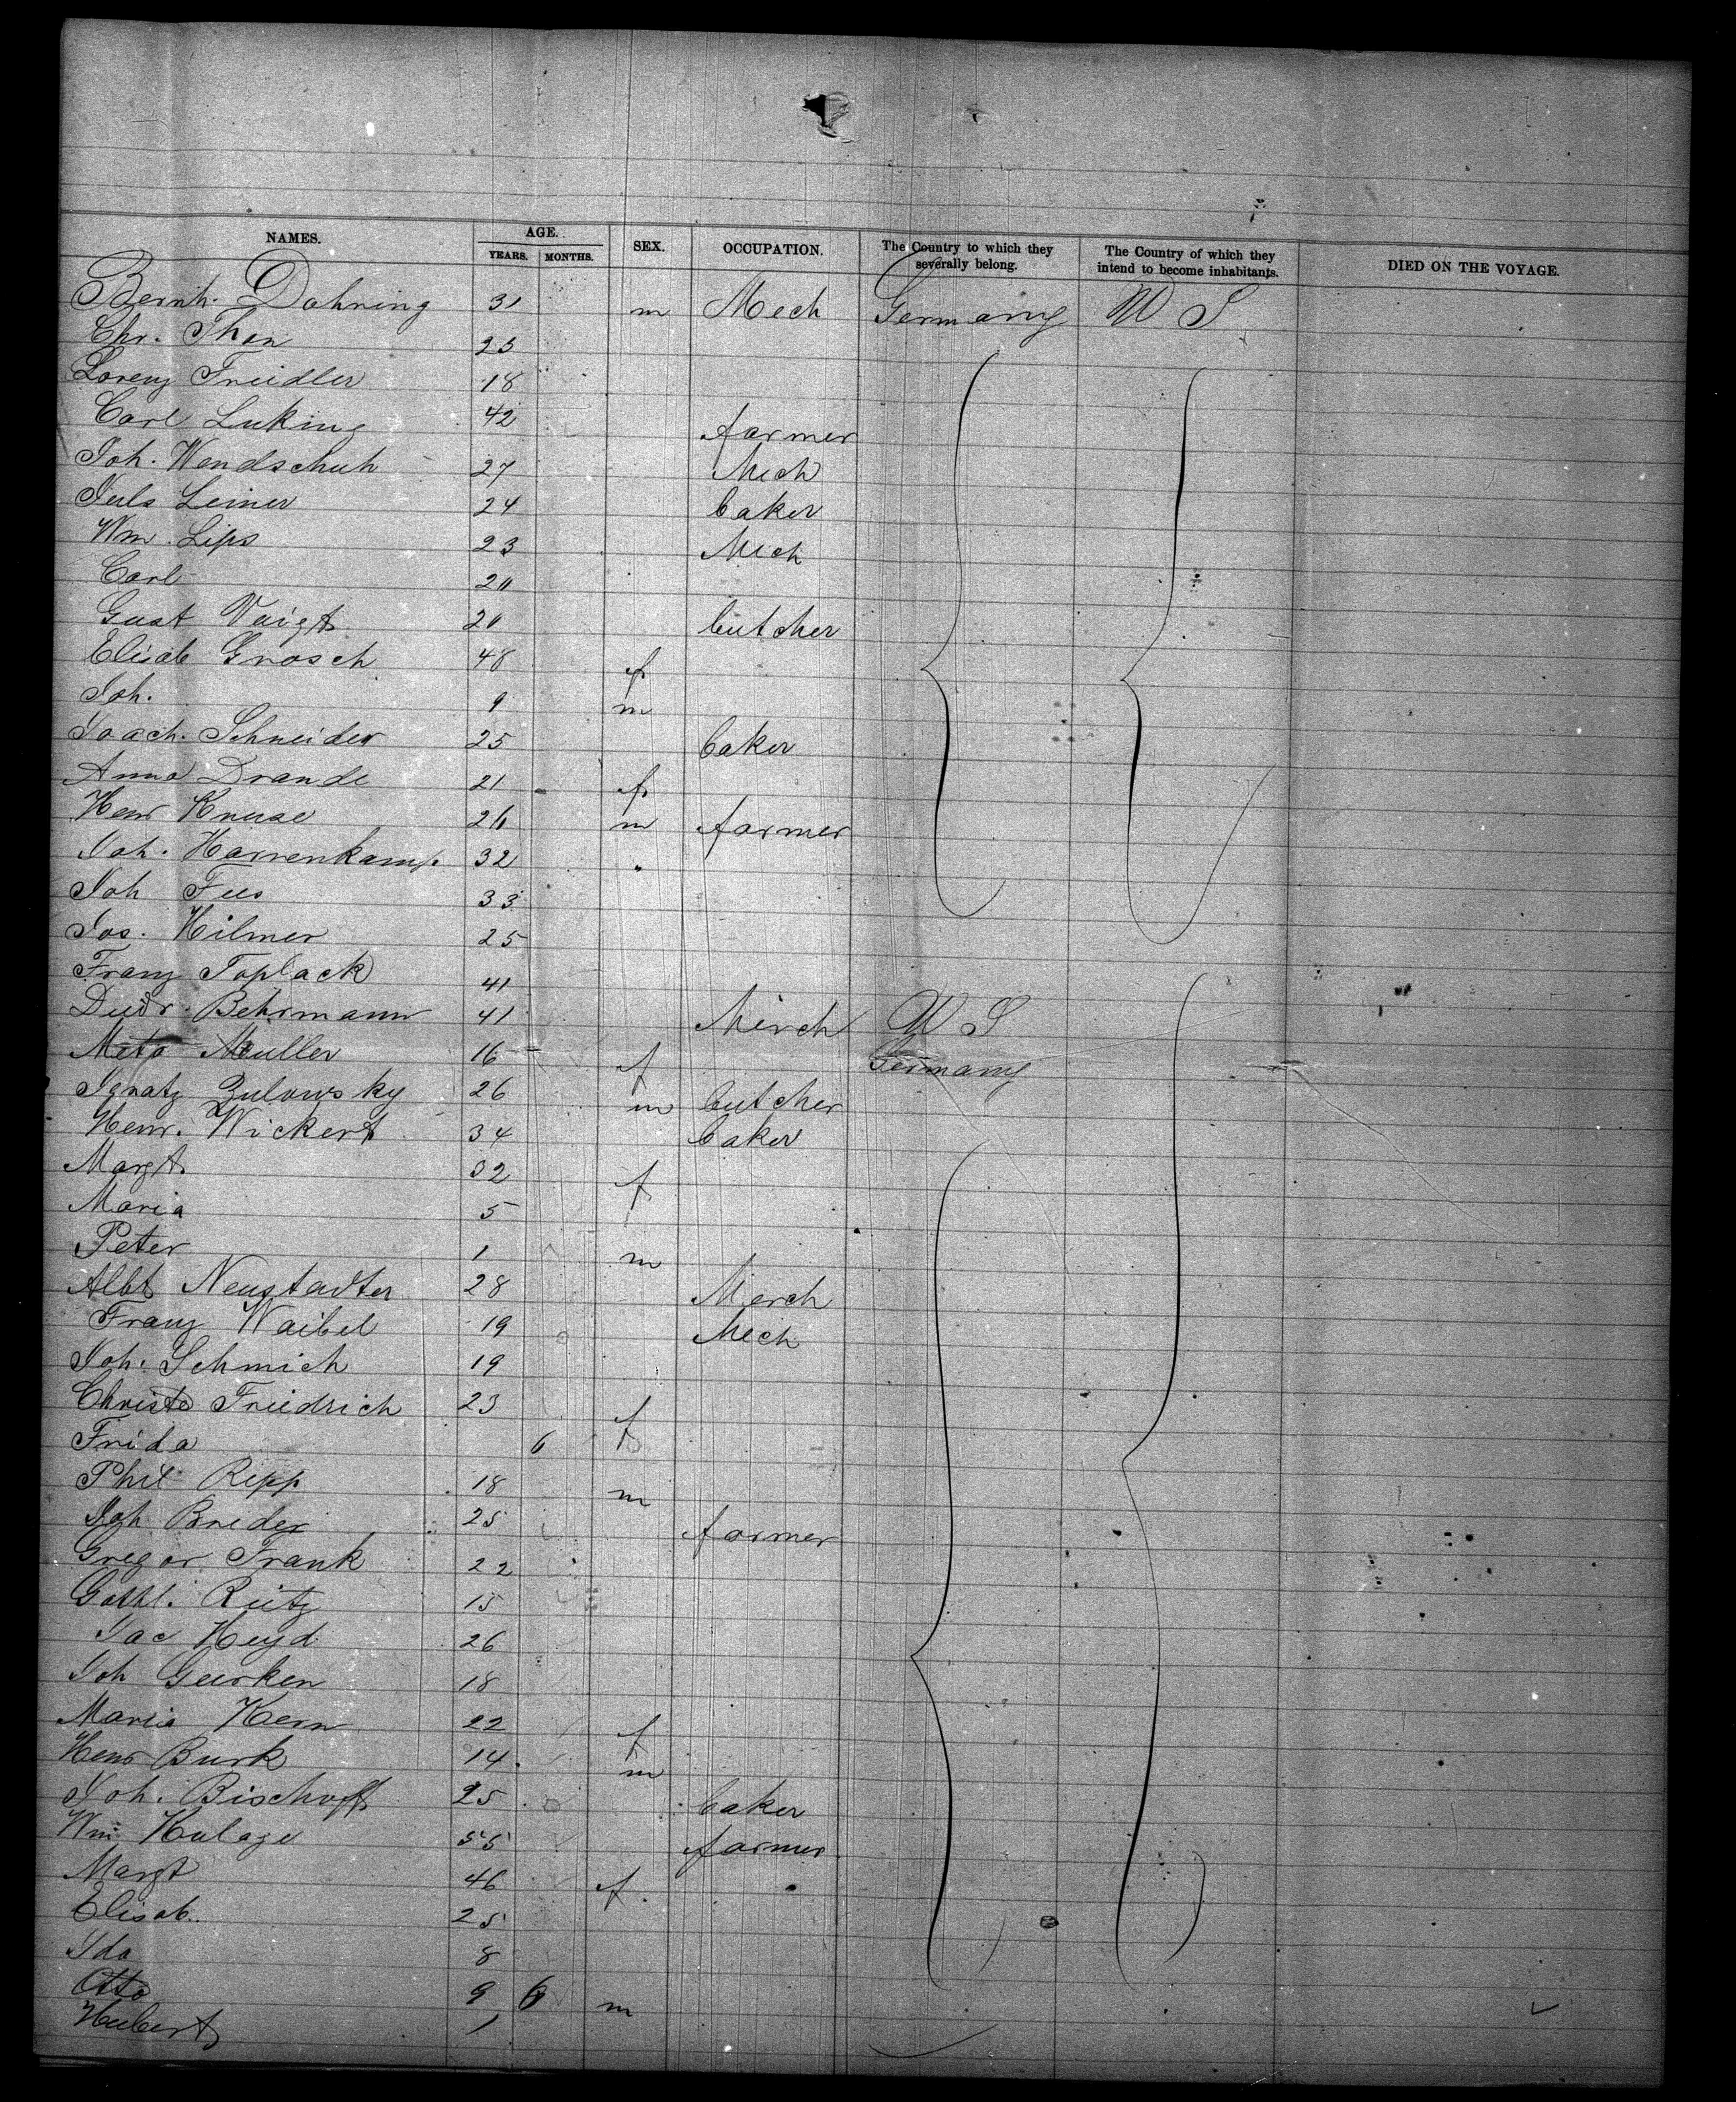 NAMES. AGE. SEX. OCCUPATION. The Country to which they severally belong. The Country of which they intend to become inhabitants. DIED ON THE VOYAGE.
YEARS. MONTHS.
Bernh. Dohring 31 m Mech Germany U S
Chr. Thon 25
Lorenz Treidler 18
Carl Luking 42 farmer
Joh. Wendschuh 27 Mech
Juls Leiner 24 baker
Wm. Lips 23 Mech
Carl 20
Gust Voigt 20 butcher
Elisab Grosch 48 f
Joh. 9 m
Joach. Schneider 25 baker
Anna Drande 21 f
Henr Kruse 26 m farmer
Joh. Harrenkamp. 32
Joh Fees 33
Jos. Hilmer 25
Franz Toplack 41
Diedr. Behrmann 41 Merch U S
Meta Muller 16 f Germany
Ignatz Zulowsky 26 m butcher
Henr. Wickert 34 baker
Margt. 32 f
Maria 5
Peter 1 m
Albt Neustadter 28 Merch
Franz Waibel 19 Mech
Joh. Schmich 19
Christe Friedrich 23 f
Frida 6 f
Phil Ripp 18 m
Joh Breder 25 farmer
Gregor Frank 22
Gottl. Rietz 15
Jac Heyd 26
Joh Geerken 18
Maria Kern 22 f
Henr Burk 14 m
Joh. Bischoff 25 baker
Wm Hulage 55 farmer
Margt 46 f
Elisab. 25
Ida 8
Otto 9 6 m
Hubert 1